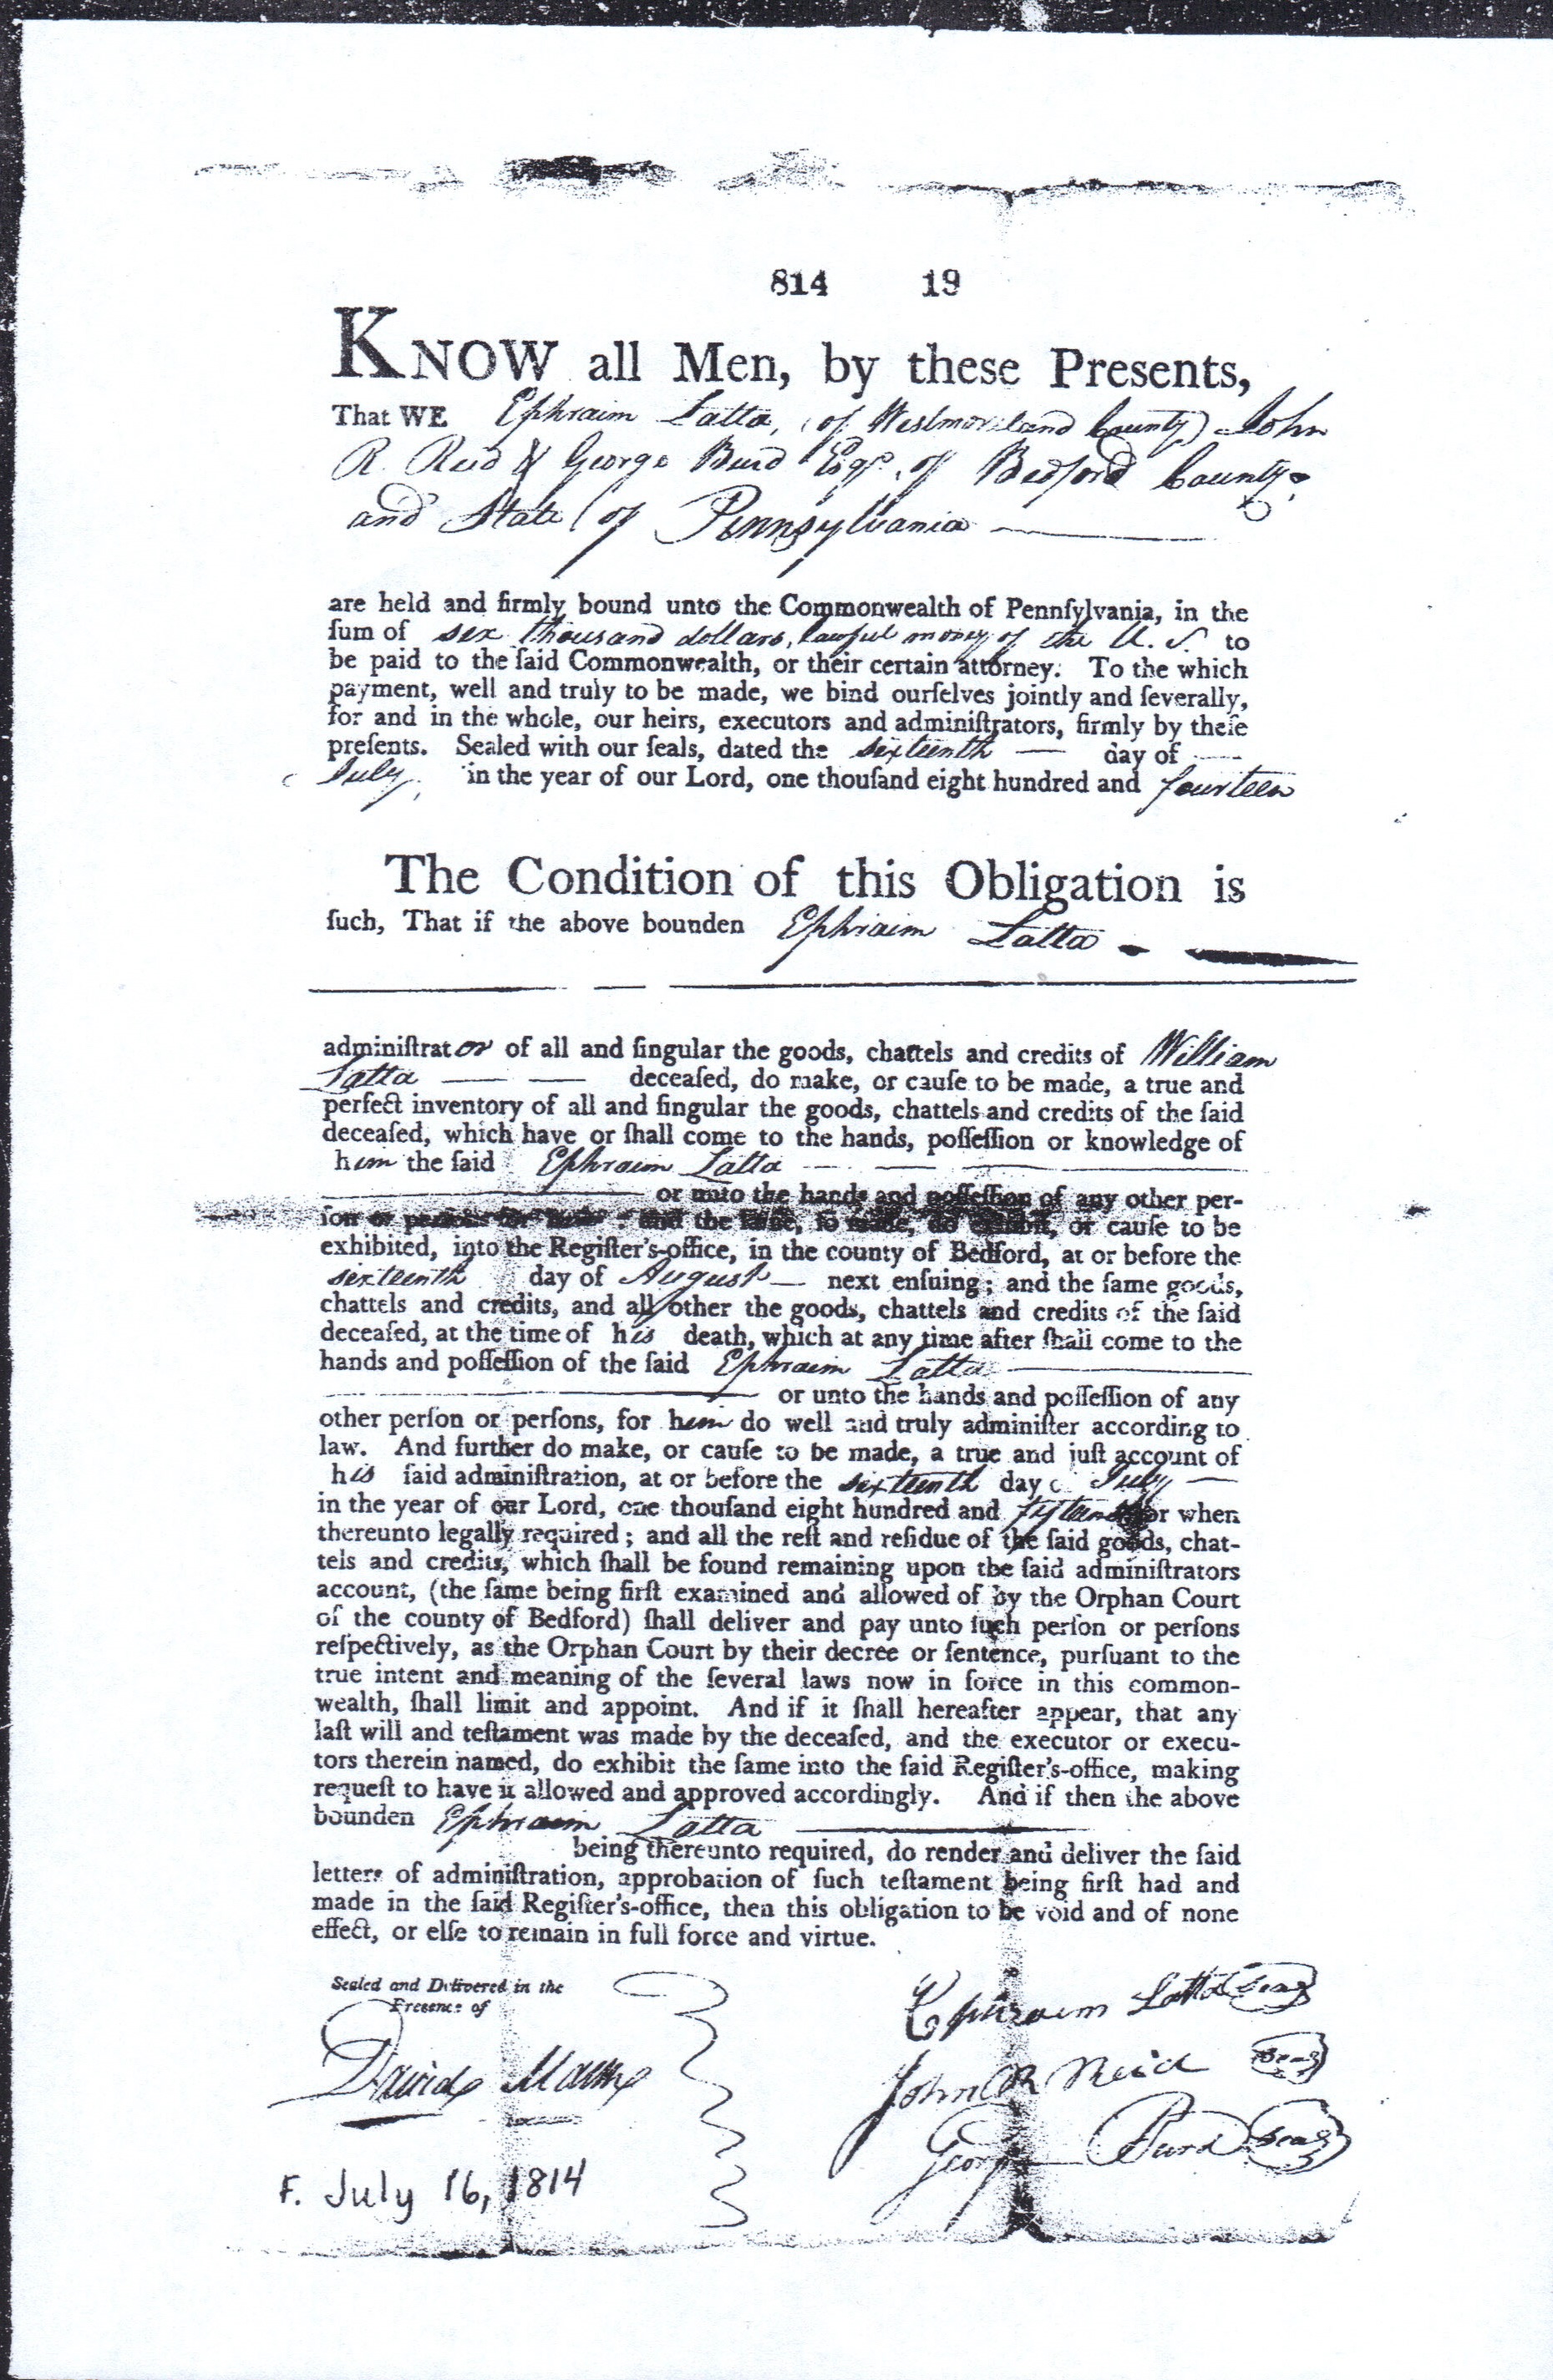 814 19
KNOW all Men, by these Presents,
That WE Ephraim Latta, (of Westmoreland County) John
R. Reid & George Burd Esqr. of Bedford County
and State of Pennsylvania
are held and firmly bound unto the Commonwealth of Pennſylvania, in the
ſum of six thousand dollars, lawful money of the U. S. to
be paid to the ſaid Commonwealth, or their certain attorney. To the which
payment, well and truly to be made, we bind ourſelves jointly and ſeverally,
for and in the whole, our heirs, executors and adminiſtrators, firmly by theſe
preſents. Sealed with our ſeals, dated the sixteenth day of
July, in the year of our Lord, one thouſand eight hundred and fourteen
The Condition of this Obligation is
ſuch, That if the above bounden Ephraim Latta
adminiſtrator of all and ſingular the goods, chattels and credits of William
Latta deceaſed, do make, or cauſe to be made, a true and
perfect inventory of all and ſingular the goods, chattels and credits of the ſaid
deceaſed, which have or ſhall come to the hands, poſſeſſion or knowledge of
him the ſaid Ephraim Latta
or unto the hands and poſſeſſion of any other per-
ſon or perſons for : and the ſame, ſo made, do exhibit, or cauſe to be
exhibited, into the Regiſter's-office, in the county of Bedford, at or before the
sixteenth day of August next enſuing; and the ſame goods,
chattels and credits, and all other the goods, chattels and credits of the ſaid
deceaſed, at the time of his death, which at any time after ſhall come to the
hands and poſſeſſion of the ſaid Ephraim Latta
or unto the hands and poſſeſſion of any
other perſon or perſons, for him do well and truly adminiſter according to
law. And further do make, or cauſe to be made, a true and juſt account of
his ſaid adminiſtration, at or before the sixteenth day o July
in the year of our Lord, one thouſand eight hundred and fifteen or when
thereunto legally required; and all the reſt and reſidue of the ſaid goods, chat-
tels and credits, which ſhall be found remaining upon the ſaid adminiſtrators
account, (the ſame being firſt examined and allowed of by the Orphan Court
of the county of Bedford) ſhall deliver and pay unto ſuch perſon or perſons
reſpectively, as the Orphan Court by their decree or ſentence, purſuant to the
true intent and meaning of the ſeveral laws now in force in this common-
wealth, ſhall limit and appoint. And if it ſhall hereafter appear, that any
laſt will and teſtament was made by the deceaſed, and the executor or execu-
tors therein named, do exhibit the ſame into the ſaid Regiſter's-office, making
requeſt to have it allowed and approved accordingly. And if then the above
bounden Ephraim Latta
being thereunto required, do render and deliver the ſaid
letters of adminiſtration, approbation of ſuch teſtament being firſt had and
made in the ſaid Regiſter's-office, then this obligation to be void and of none
effect, or elſe to remain in full force and virtue.
Sealed and Delivered in the
Presence of
David Mann
Ephraim Latta Seal
John R Reid Seal
George Burd Seal
F. July 16, 1814